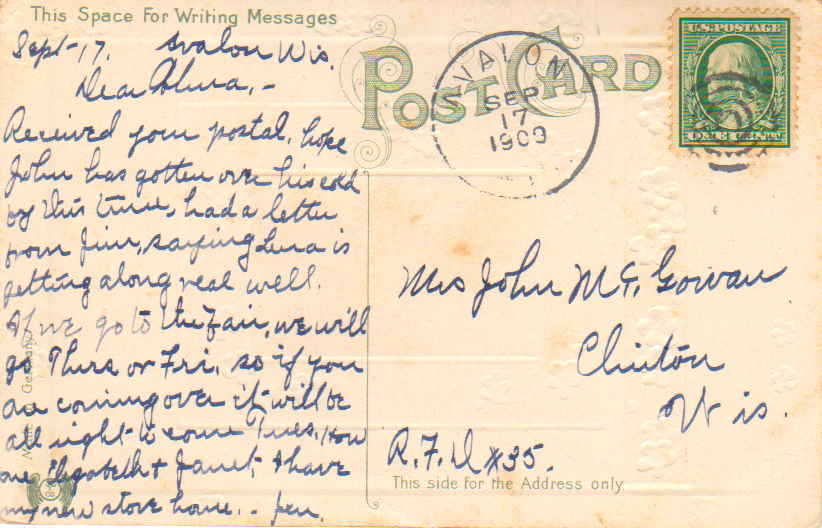 This Space For Writing Messages
Sept-17. Avalon Wis.
Dear Alma,-
Received your postal, hope
John has gotten over his cold
by this time, had a letter
from Jim, saying Luna is
getting along real well.
If we go to the Fair, we will
go Thurs or Fri. so if you
are coming over it will be
all right to come Tues. How
are Elizabeth & Janet, I have
my new stove home. - Jen.
POST CARD
AVALON
SEP
17
1909
U.S. POSTAGE
ONE CENT
Mrs John McGowan
Clinton
Wis.
R.F.D #35.
This side for the Address only
Germany